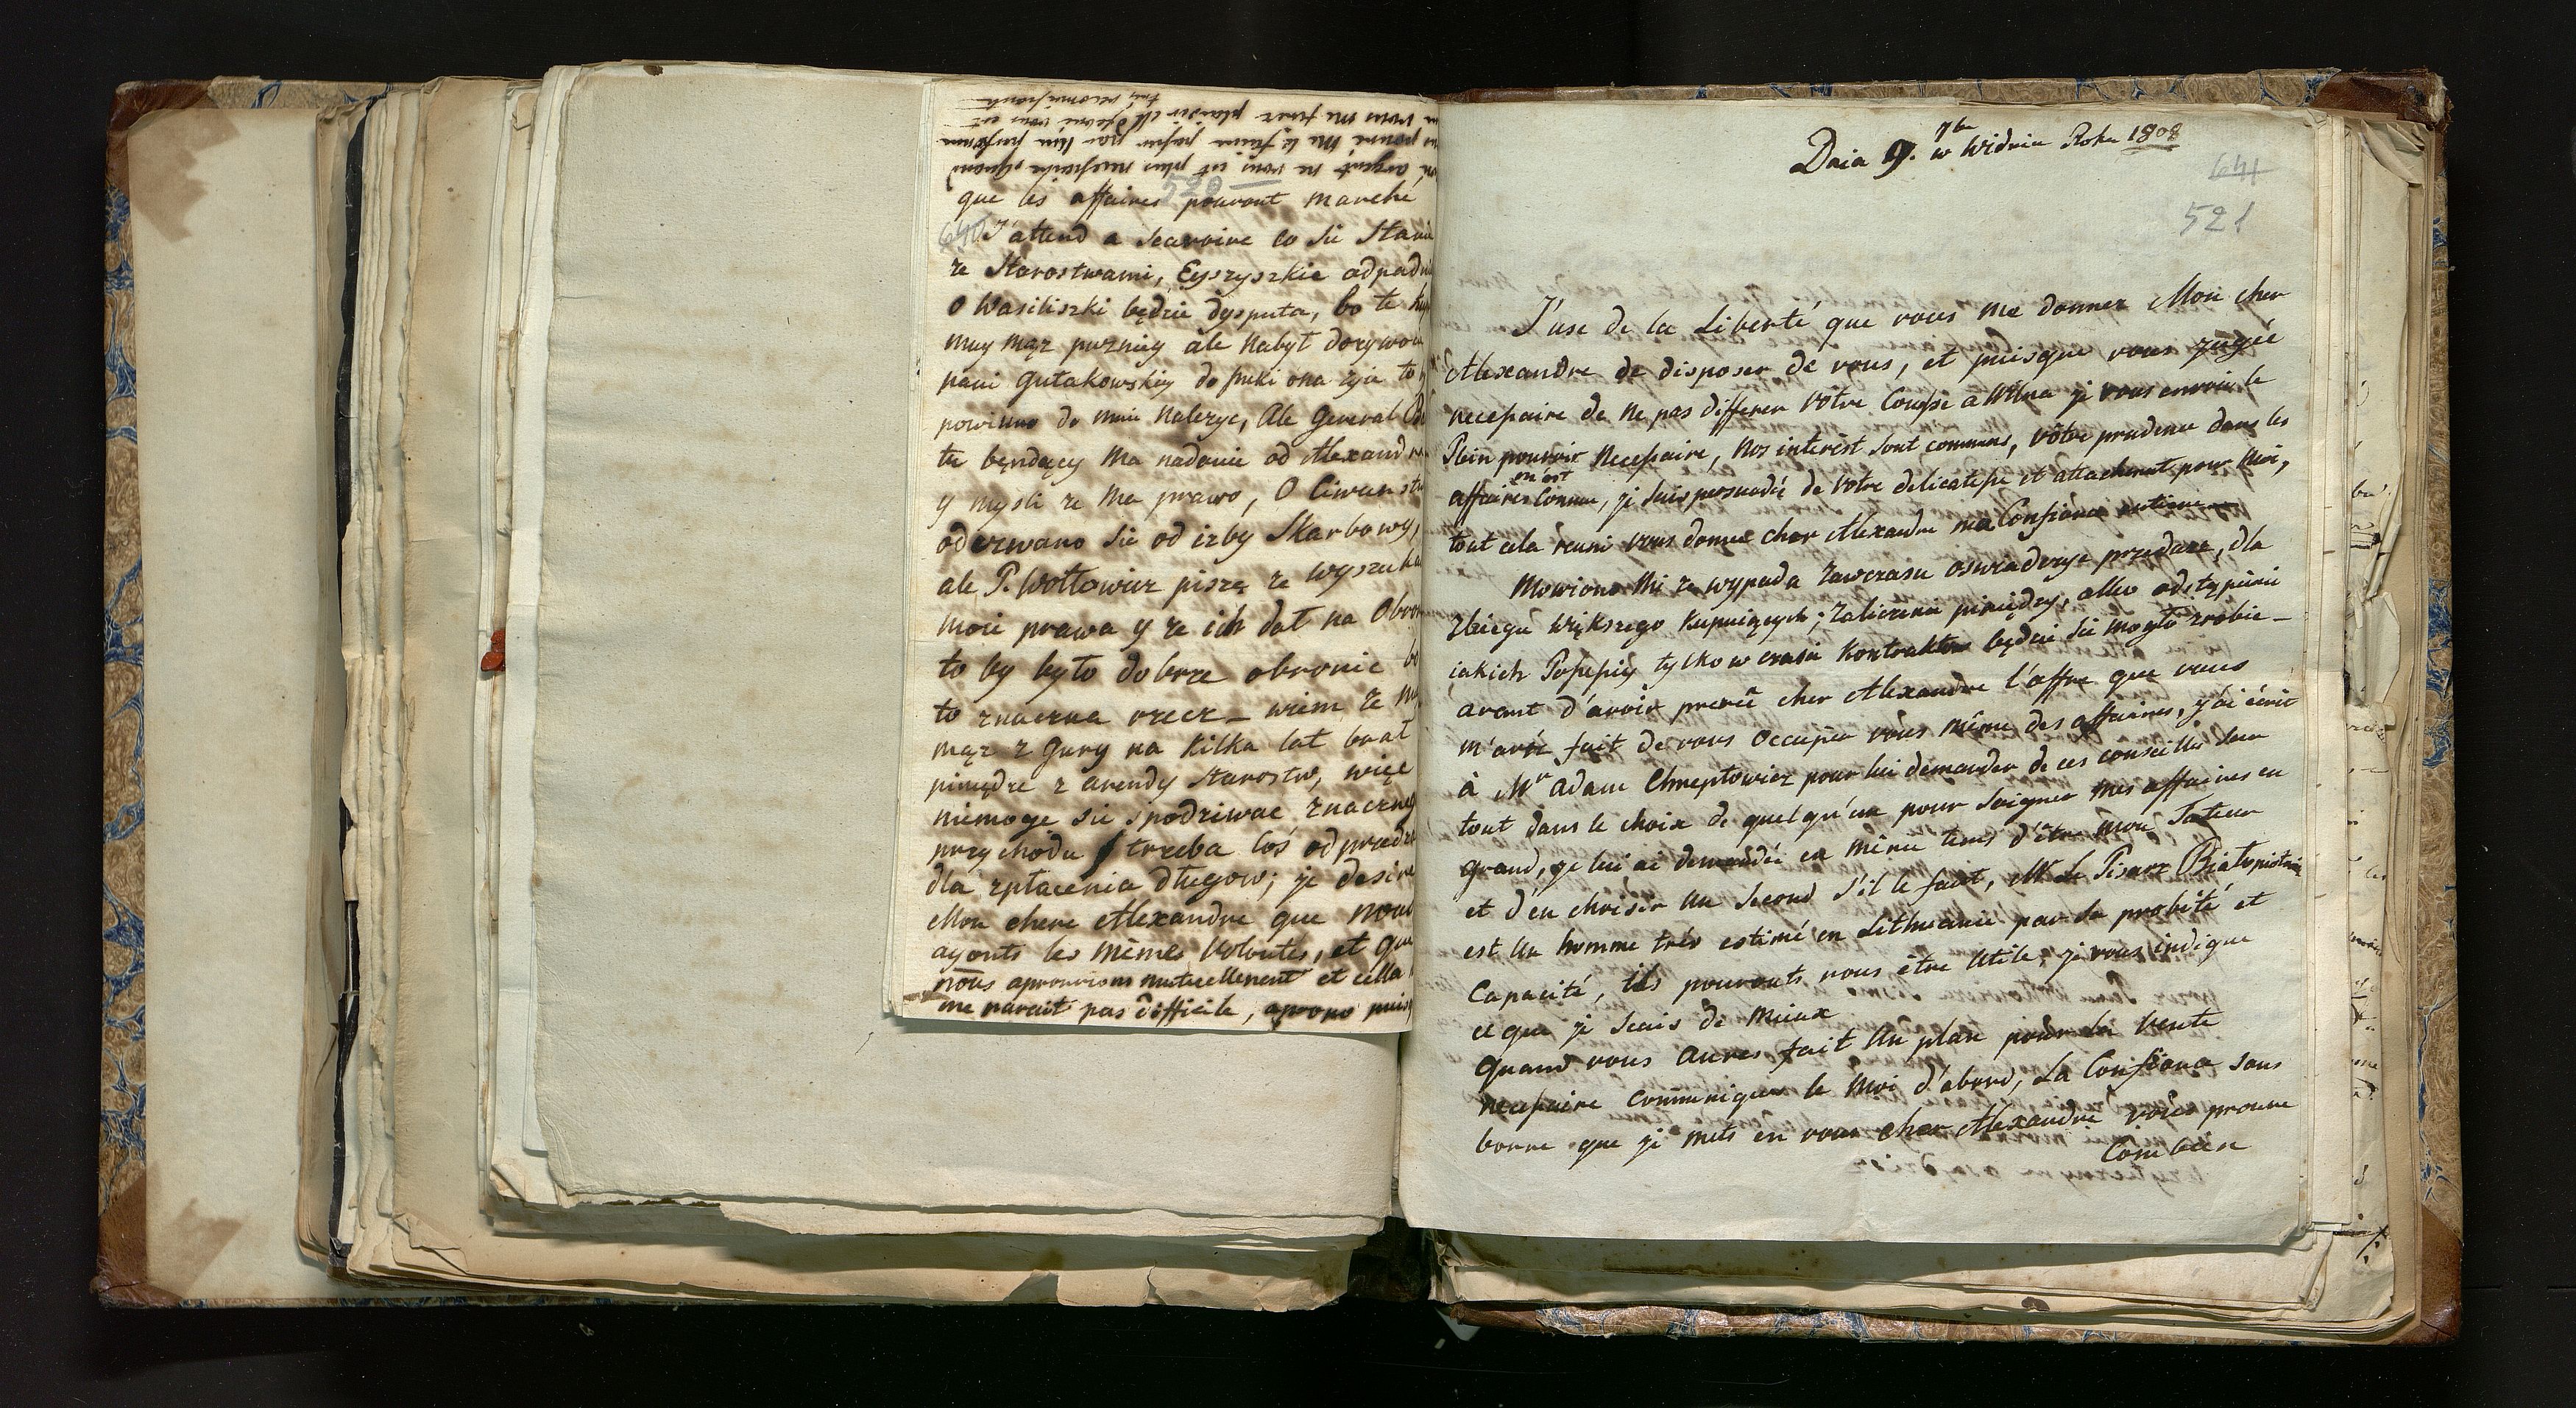 très reconnaissante
vous me ferez plaisir et je vous en
pouvé me le faire passer par
argent ne vous est plus necessaire, quand
528
que les affaires pouront marché
640
J'attend a scavoire co sie stanie
ze Starostwami, Eyszyszkie odpadnie
O Wasiliszki będzie dysputa, bo te
muy mąż puzniey ale nabył dorywcz
pani Gutakowskiey do puki ona żyie to
powinno do mnie należyc, Ale General
tu będący ma nadanie od Alexandra
y mysli ze ma prawo, O Ciwunstw
odezwano sie od izby Skarbowy,
ale P. Wołłowicz pisze ze wyszuka
moie prawa y ze ich dał na Obron
to by było dobrze obronic bo
to znaczna rzecz - wiem ze
mąż z gury na kilka lat brał
pieniędze z arendy starostw, więc
niemoge sie spodziwac znaczneg
przychodu trzeba coś odprzedac
dla zpłacenia długow; je desire
Mon chere Alexandre que nous
ayonts les mêmes volontés, et que
nous aprouvions mutuellement et cella
me parait pas difficile, apropo puis
Dnia 9. 7bre w Widniu Roku 1808
641
521
J'use de la Liberté que vous me donner Mon cher
Alexandre de disposer de vous, et puisque vous jugée
necessaire de ne pas differer vôtre Course a Wilna je vous envoie le
Plein pouvoir Necessaire, Nos interêst sont communs, vôtre prudence dans les
affaires m'est Connue, je suis persuadée de votre delicatesse et attachement pour Moi,
tout cela réuni vous donne cher Alexandre ma Confiance entiere
Mowiono Mi ze wypada zawczasu oswiadczyc przedaze, dla
zbiegu większego kupuiących; zaliczenie pieniędzy, albo odstąpienie
iakich Possessiy tylko w czasie Kontraktow będzie sie mogło zrobic -
avant d'avoir prevû cher Alexandre l'offre que vous
m'avéz fait de vous occuper vous même des affaires, j'ai écrit
à Mr Adam Chreptowicz pour lui demander de ces conseilles sur
tout dans le choix de quelqu'un pour soigner mes affaires en
grand, je lui ai demandée en même tems d'être mon Tuteur
et d'en choisir un second s'il le faut, Mr Le Pisarz
est un homme très estimé en Lithuanie par sa probité et
Capacité, ils pouronts vous être utile, je vous indique
ce que je scais de mieux
Quand vous aures fait un plan pour la vente
necessaire communiquer le Moi d'abord, La Confiance sans
borne que je mets en vous cher Alexandre vous prouve
Combien